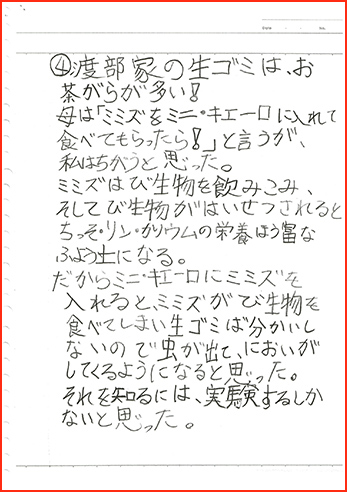 ④渡部家の生ゴミは、お
茶がらが多い！
母は「ミミズをミニ・キエーロに入れて
食べてもらったら！」と言うが、
私はちがうと思った。
ミミズはび生物を飲みこみ、
そしてび生物がはいせつされると
ちっそ・リン・カリウムの栄養ほう富な
ふよう土になる。
だからミニ・キエーロにミミズを
入れると、ミミズがび生物を
食べてしまい生ゴミは分かいし
ないので虫が出て、においが
してくるようになると思った。
それを知るには、実験するしか
ないと思った。